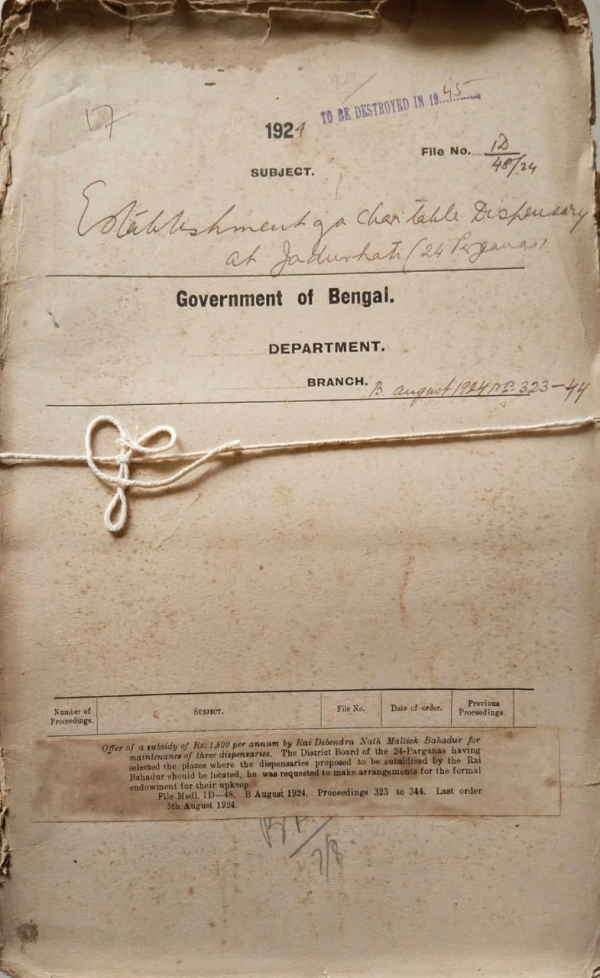 17
TO BE DESTROYED IN 1945
1924
File No. 1D
48/24
SUBJECT.
Establishment of a Charitable Dispensary
at Jadurhati (24 Parganas)
Government of Bengal.
DEPARTMENT.
BRANCH. B. August 1924 Nos. 323-44
Number of Proceedings.
SUBJECT.
File No.
Date of order.
Previous Proceedings.
Offer of a subsidy of Rs. 1,800 per annum by Rai Debendra Nath Mallick Bahadur for
maintenance of three dispensaries. The District Board of the 24-Parganas having
selected the places where the dispensaries proposed to be subsidized by the Rai
Bahadur should be located, he was requested to make arrangements for the formal
endowment for their upkeep.
File Medl. 1D—48. B August 1924. Proceedings 323 to 344. Last order
5th August 1924.